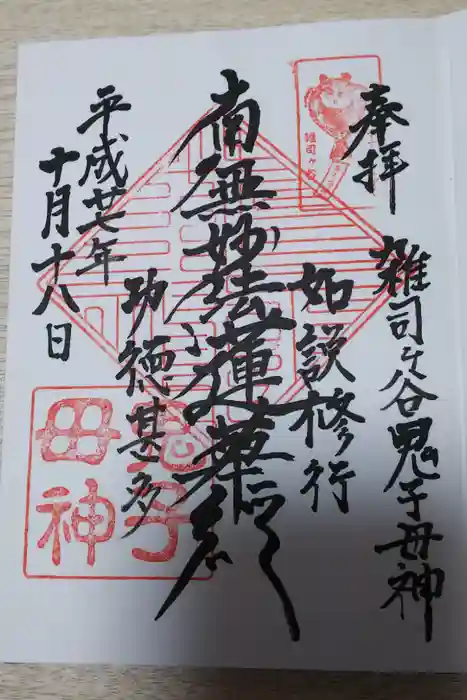 奉拝
雑司ケ谷鬼子母神
如説修行
南無妙法蓮華経
功徳甚多
平成廿七年
十月十八日
雑司ヶ谷
鬼子
母神